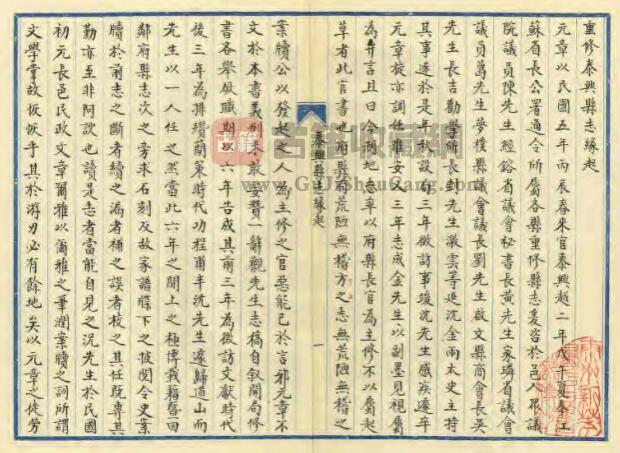 重修泰興縣志緣起
元章以民國五年丙辰春來官泰興越二年戊午夏奉江
蘇省長公署通令所屬各縣重修縣志爰咨於邑人眾議
院議員陳先生經鎔省議會秘書長黃先生家璘省議會
議員葛先生夢樸縣議會議長劉先生啟文縣商會長吳
先生長吉勸學所長封先生激雲等延沈金兩太史主持
其事遂於是年秋設局三年徵訪事竣沈先生感疾遽卒
元章旋亦調任淮安又三年志成金先生以副墨見視屬
為弁言且曰今兩地志率以府縣長官為主修不以屬起
草者此官書也府縣有荒陋無稽方之志無荒陋無稽之
泰興縣志緣起
一
案牘公以發起之人為主修之官惡能已於言邪元章不
文於本書義例未敢學贊一辭觀先生志稿自敘開局修
書各舉厥職期以六年告成其前三年為徵訪文獻時代
後三年為排纘蘭策時代功程甫半沈先生遽歸道山而
先生以一人任之然當此六年之間上之極博載籍暨一四
鄰府縣志次之旁求石刻及故家譜牒下之披閱令史案
牘於前志之斷者續之漏者補之誤者校之其任既專其
勤亦至非阿說也讀是志者當能自見之況先生於民國
初元長邑民政文章爾雅以爾雅之筆潤案牘之詞所謂
文學掌故恢恢乎其於游刃必有餘地矣以元章之徒勞
古籍收藏網
www.GuJiShouCang.com